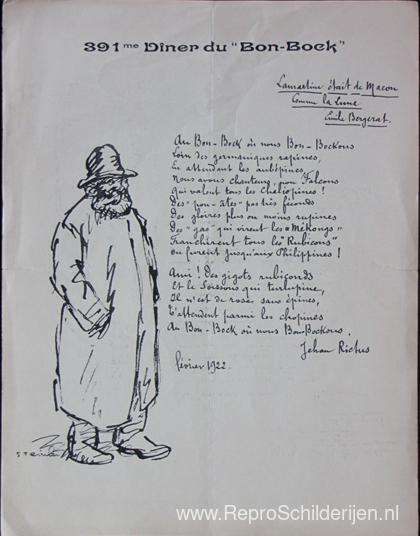 391me Dîner du "Bon-Bock"
Lamartine était de Macon
Comme la Lune
Emile Bergerat.
Au Bon-Bock où nous Bon-Bockons
Loin des germaniques rapines,
En attendant les aubépines,
Nous avons chanteurs pour Falcons
Qui valent tous les Chaliapines !
Des "pou-ètes" pas très féconds
Des gloires plus ou moins rupines
Des "gas" qui virent les "Mékongs"
Franchirent tous les "Rubicons"
Ou furent jusqu'aux Philippines !
Ami ! Des gigots rubiconds
Et le Soissons qui turlupine,
Il n'est de roses sans épines,
T'attendent parmi les chopines
Au Bon-Bock où nous Bon-Bockons.
Jehan Rictus
février 1922.
Steinlen
www.ReproSchilderijen.nl